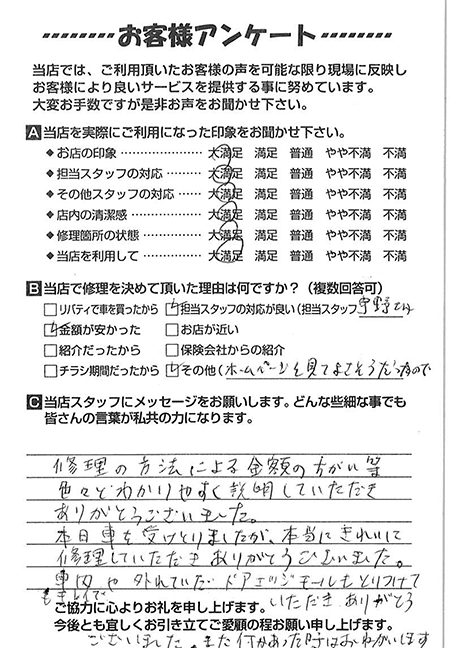 お客様アンケート
当店では、ご利用頂いたお客様の声を可能な限り現場に反映し
お客様により良いサービスを提供する事に努めています。
大変お手数ですが是非お声をお聞かせ下さい。
A 当店を実際にご利用になった印象をお聞かせ下さい。
◆お店の印象 ………………… 大満足 満足 普通 やや不満 不満
◆担当スタッフの対応 ……… 大満足 満足 普通 やや不満 不満
◆その他スタッフの対応 …… 大満足 満足 普通 やや不満 不満
◆店内の清潔感 ……………… 大満足 満足 普通 やや不満 不満
◆修理箇所の状態 …………… 大満足 満足 普通 やや不満 不満
◆当店を利用して …………… 大満足 満足 普通 やや不満 不満
B 当店で修理を決めて頂いた理由は何ですか?(複数回答可)
□リバティで車を買ったから ☑担当スタッフの対応が良い(担当スタッフ 宇野さん
☑金額が安かった □お店が近い
□紹介だったから □保険会社からの紹介
□チラシ期間だったから ☑その他(ホームページを見てよさそうだったので
C 当店スタッフにメッセージをお願いします。どんな些細な事でも
皆さんの言葉が私共の力になります。
修理の方法による金額のちがい等
色々とわかりやすく説明していただき
ありがとうございました。
本日車を受けとりましたが、本当にきれいに
修理していただきありがとうございました。
車内や外れていたドアエッジモールもとりつけて
もキレイで
ご協力に心よりお礼を申し上げます。
いただきありがとう
今後とも宜しくお引き立てご愛顧の程お願い申し上げます。
ございました。また何かあった時はおねがいします